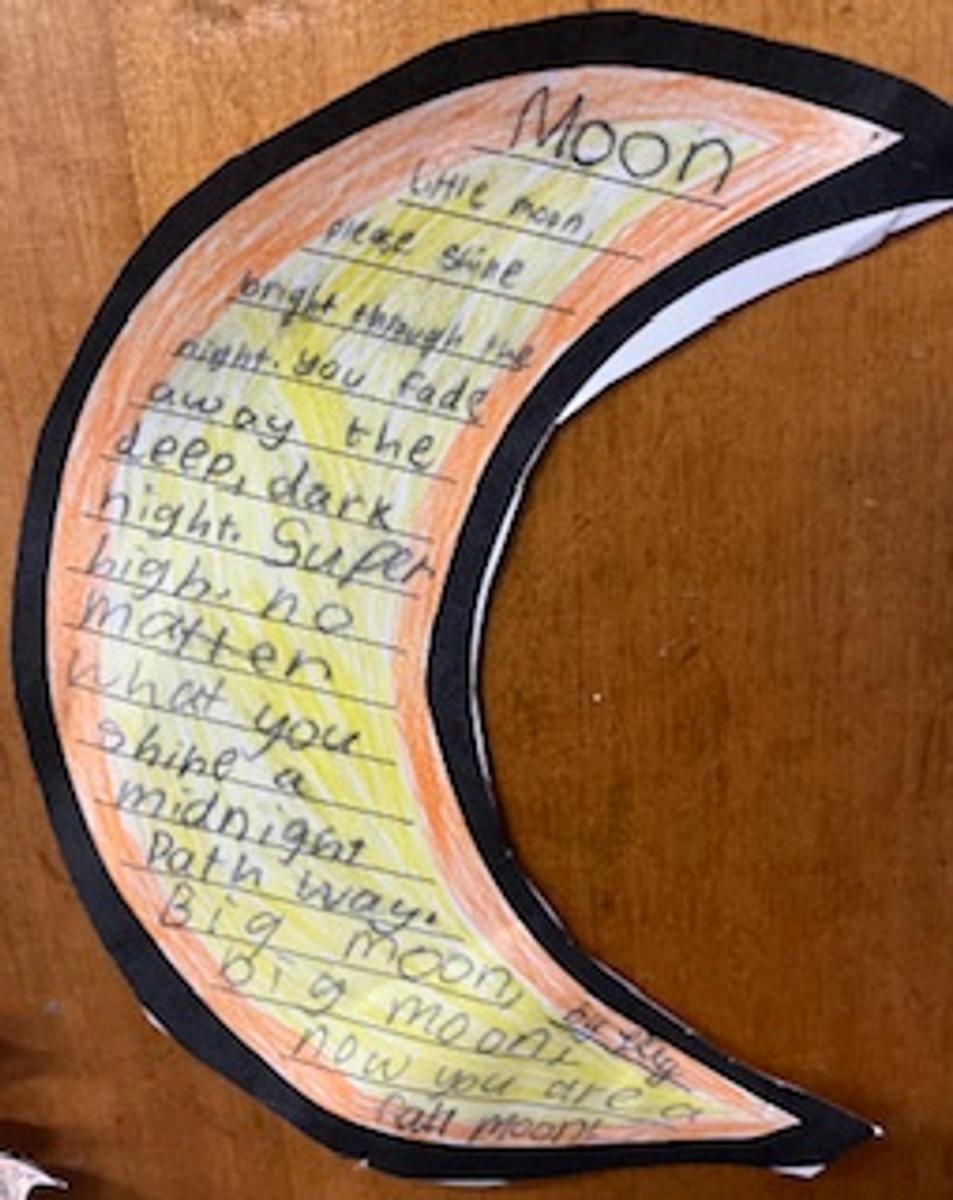 Moon
Little moon,
please shine
bright through the
night. you fade
away the
deep, dark
night. Super
high, no
matter
what you
shine a
midnight
Path way.
Big moon,
big moon,
now you are a
full moon!